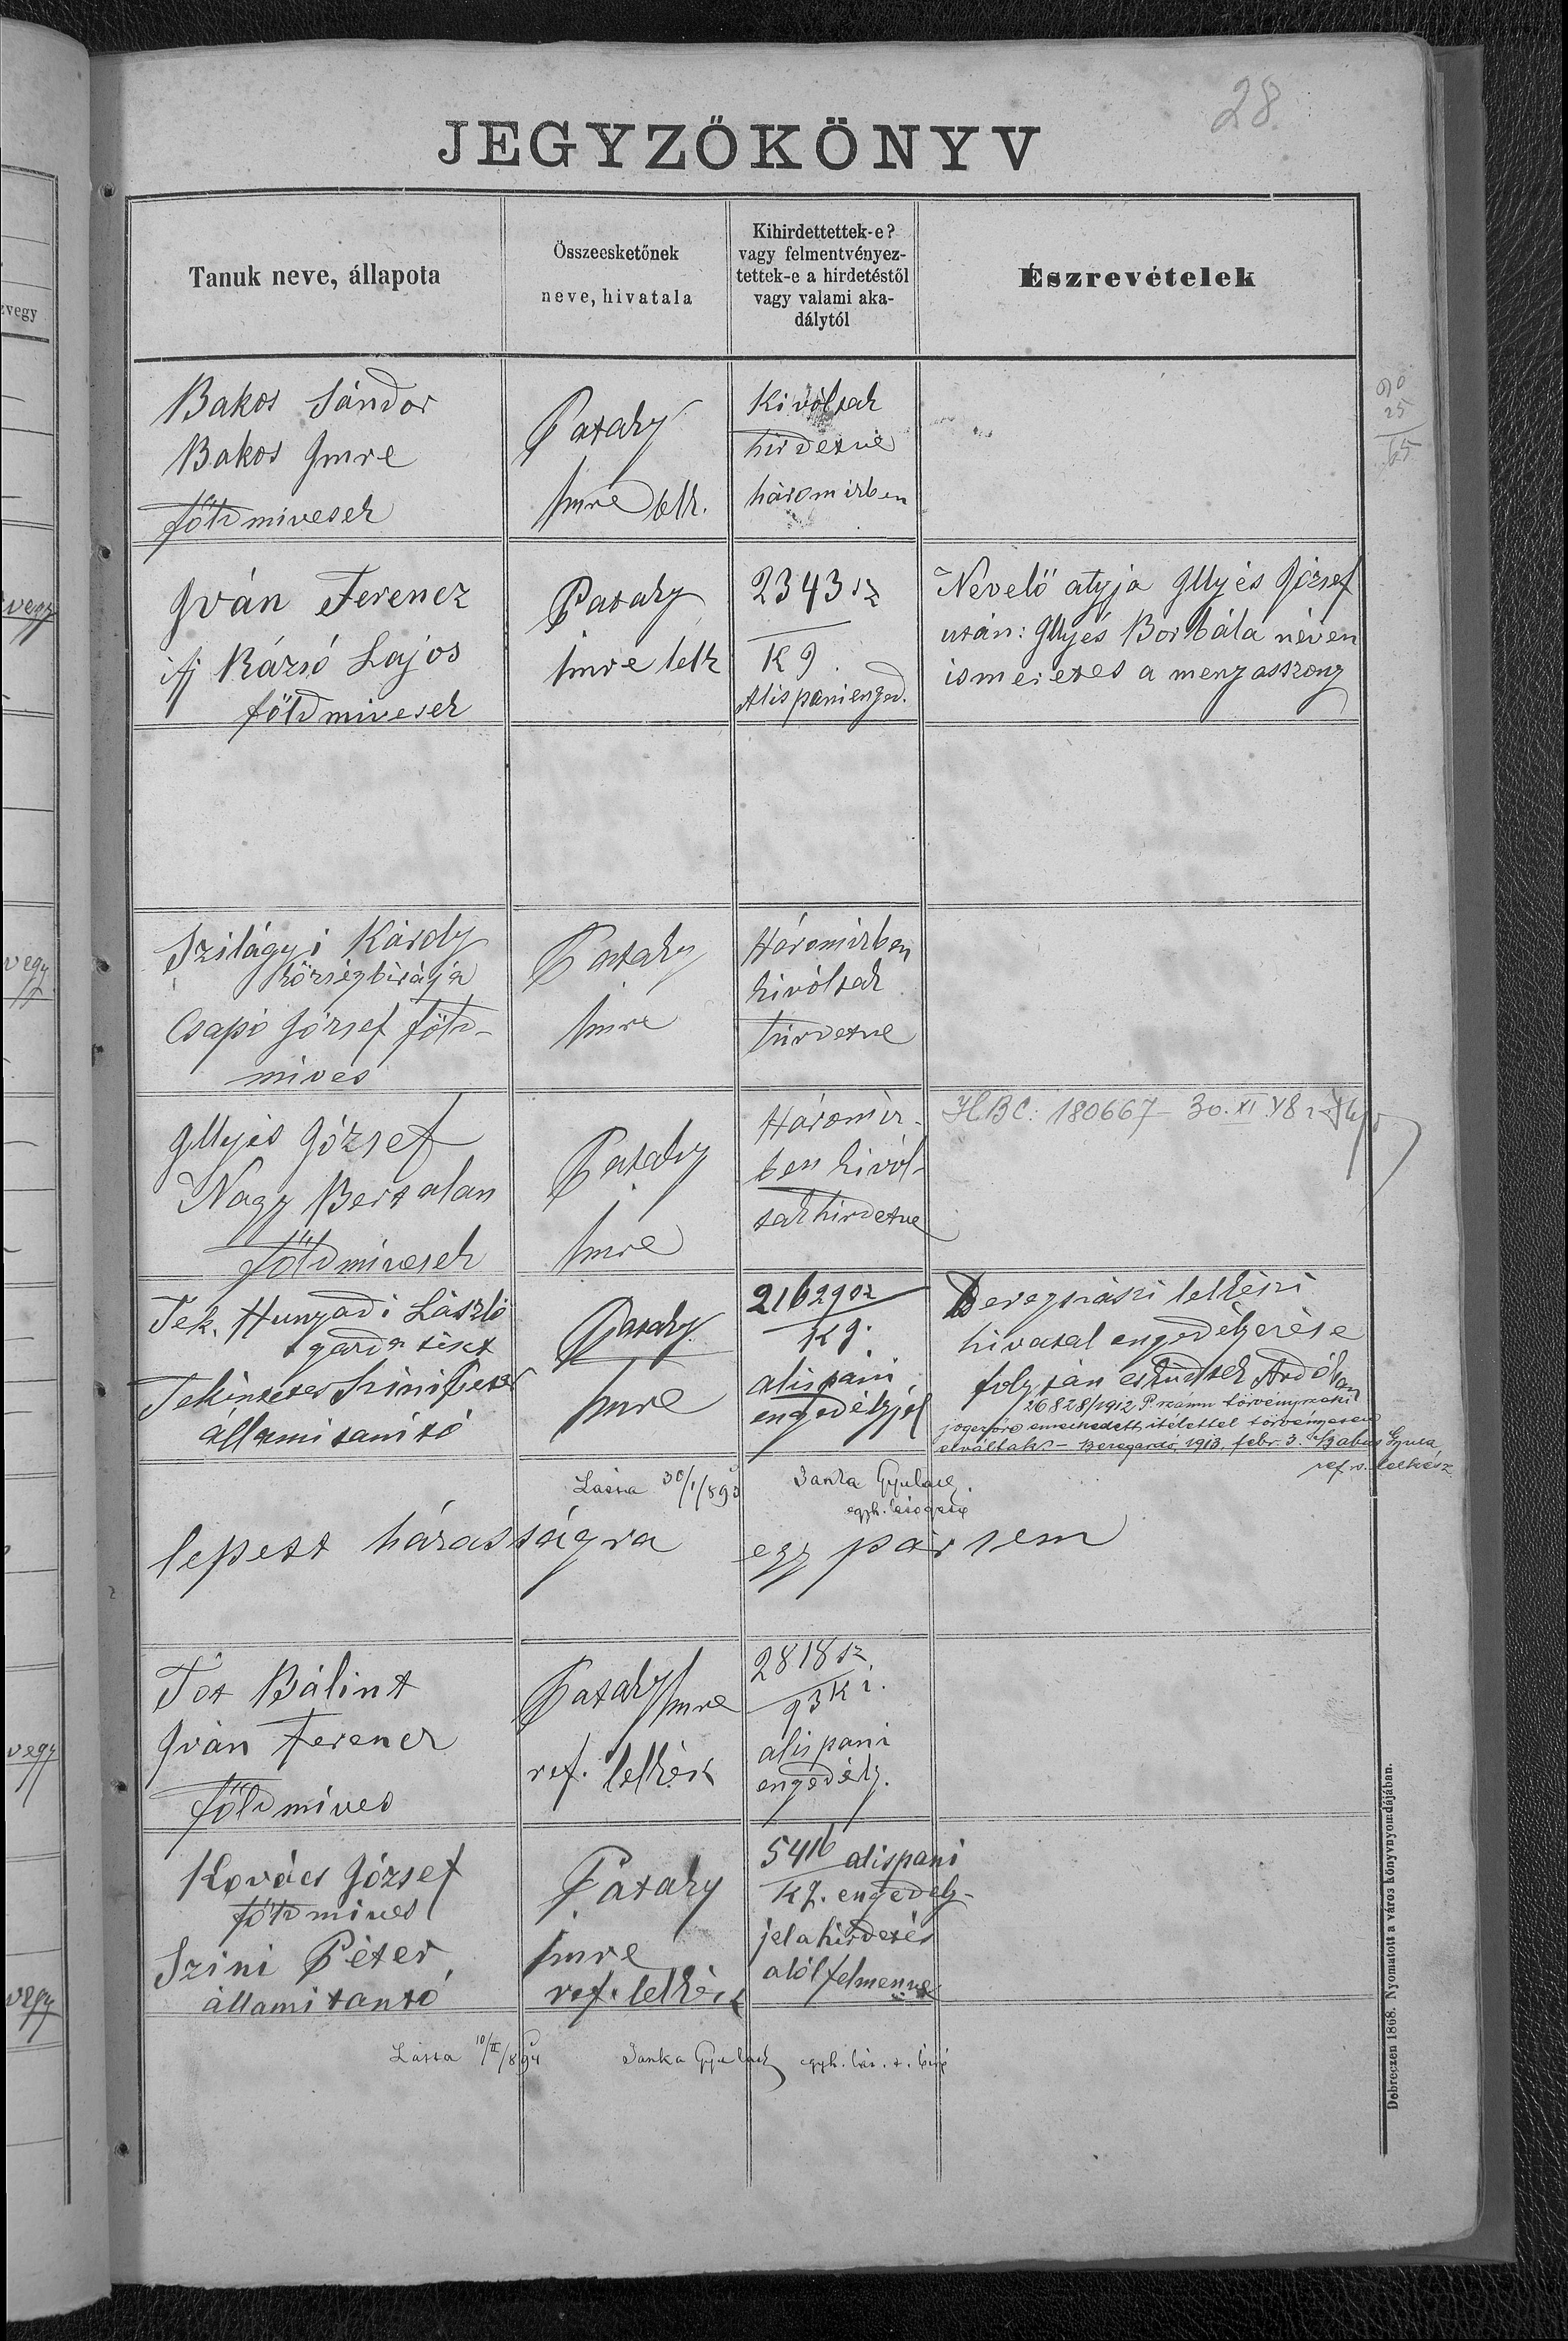 28
JEGYZŐKÖNYV
Tanuk neve, állapota
Összeesketőnek
neve, hivatala
Kihirdettettek-e?
vagy felmentvényez-
tettek-e a hirdetéstől
vagy valami aka-
dálytól
Észrevételek
Bakos Sándor
Bakos Imre
földmivesek
Pataky
Imre lelk.
Ki vóltak
hirdetve
háromizben
90
25
65
Iván Ferencz
ifj Rázsó Lajos
földmivesek
Pataky
Imre lelk
2343 sz
K 9.
Alispáni enged.
Nevelő atyja Illyés József
után: Illyés Borbála néven
ismeretes a menyasszony
Szilágyi Károly
község birája
Csapó József föld-
mives
Pataky
Imre
Háromizben
kivóltak
hirdetve
Illyés József
Nagy Bertalan
földmivesek
Pataky
Imre
Háromiz-
ben kivól-
tak hirdetve
H.B.C: 180667 - 30. XI. 48
Tek. Hunyadi László
gárda tiszt
Tekintetes Szini Péter
állami tanitó
Pataky
Imre
21629 sz
K 9.
alispáni
engedélylyel
Beregszászi lelkészi
hivatal engedélyezése
folytán esküdtek Ardóban
26828/1912 P. számu törvényszéki
jogerőre emelkedett itélettel törvényesen
elváltak – Beregardó, 1913. febr. 3. Szabó Gyula
ref. lelkész
Látta 30/I/893 Janka Gyula
egyh.
lepett házasságra egy pár sem
Tót Bálint
Iván Ferencz
földmives
Pataky Imre
ref. lelkész
2818 sz
93 K i.
alispáni
engedély.
Kovács József
földmives
Szini Péter
állami tanitó
Pataky
Imre
ref. lelkész
5416 alispáni
K 9. engedély-
jel a hirdetés
alól felmentve
Látta 10/II/894 Janka Gyula egyh.
Debreczen 1868. Nyomatott a város könyvnyomdájában.
vegy
vegy
vegy
vegy
vegy